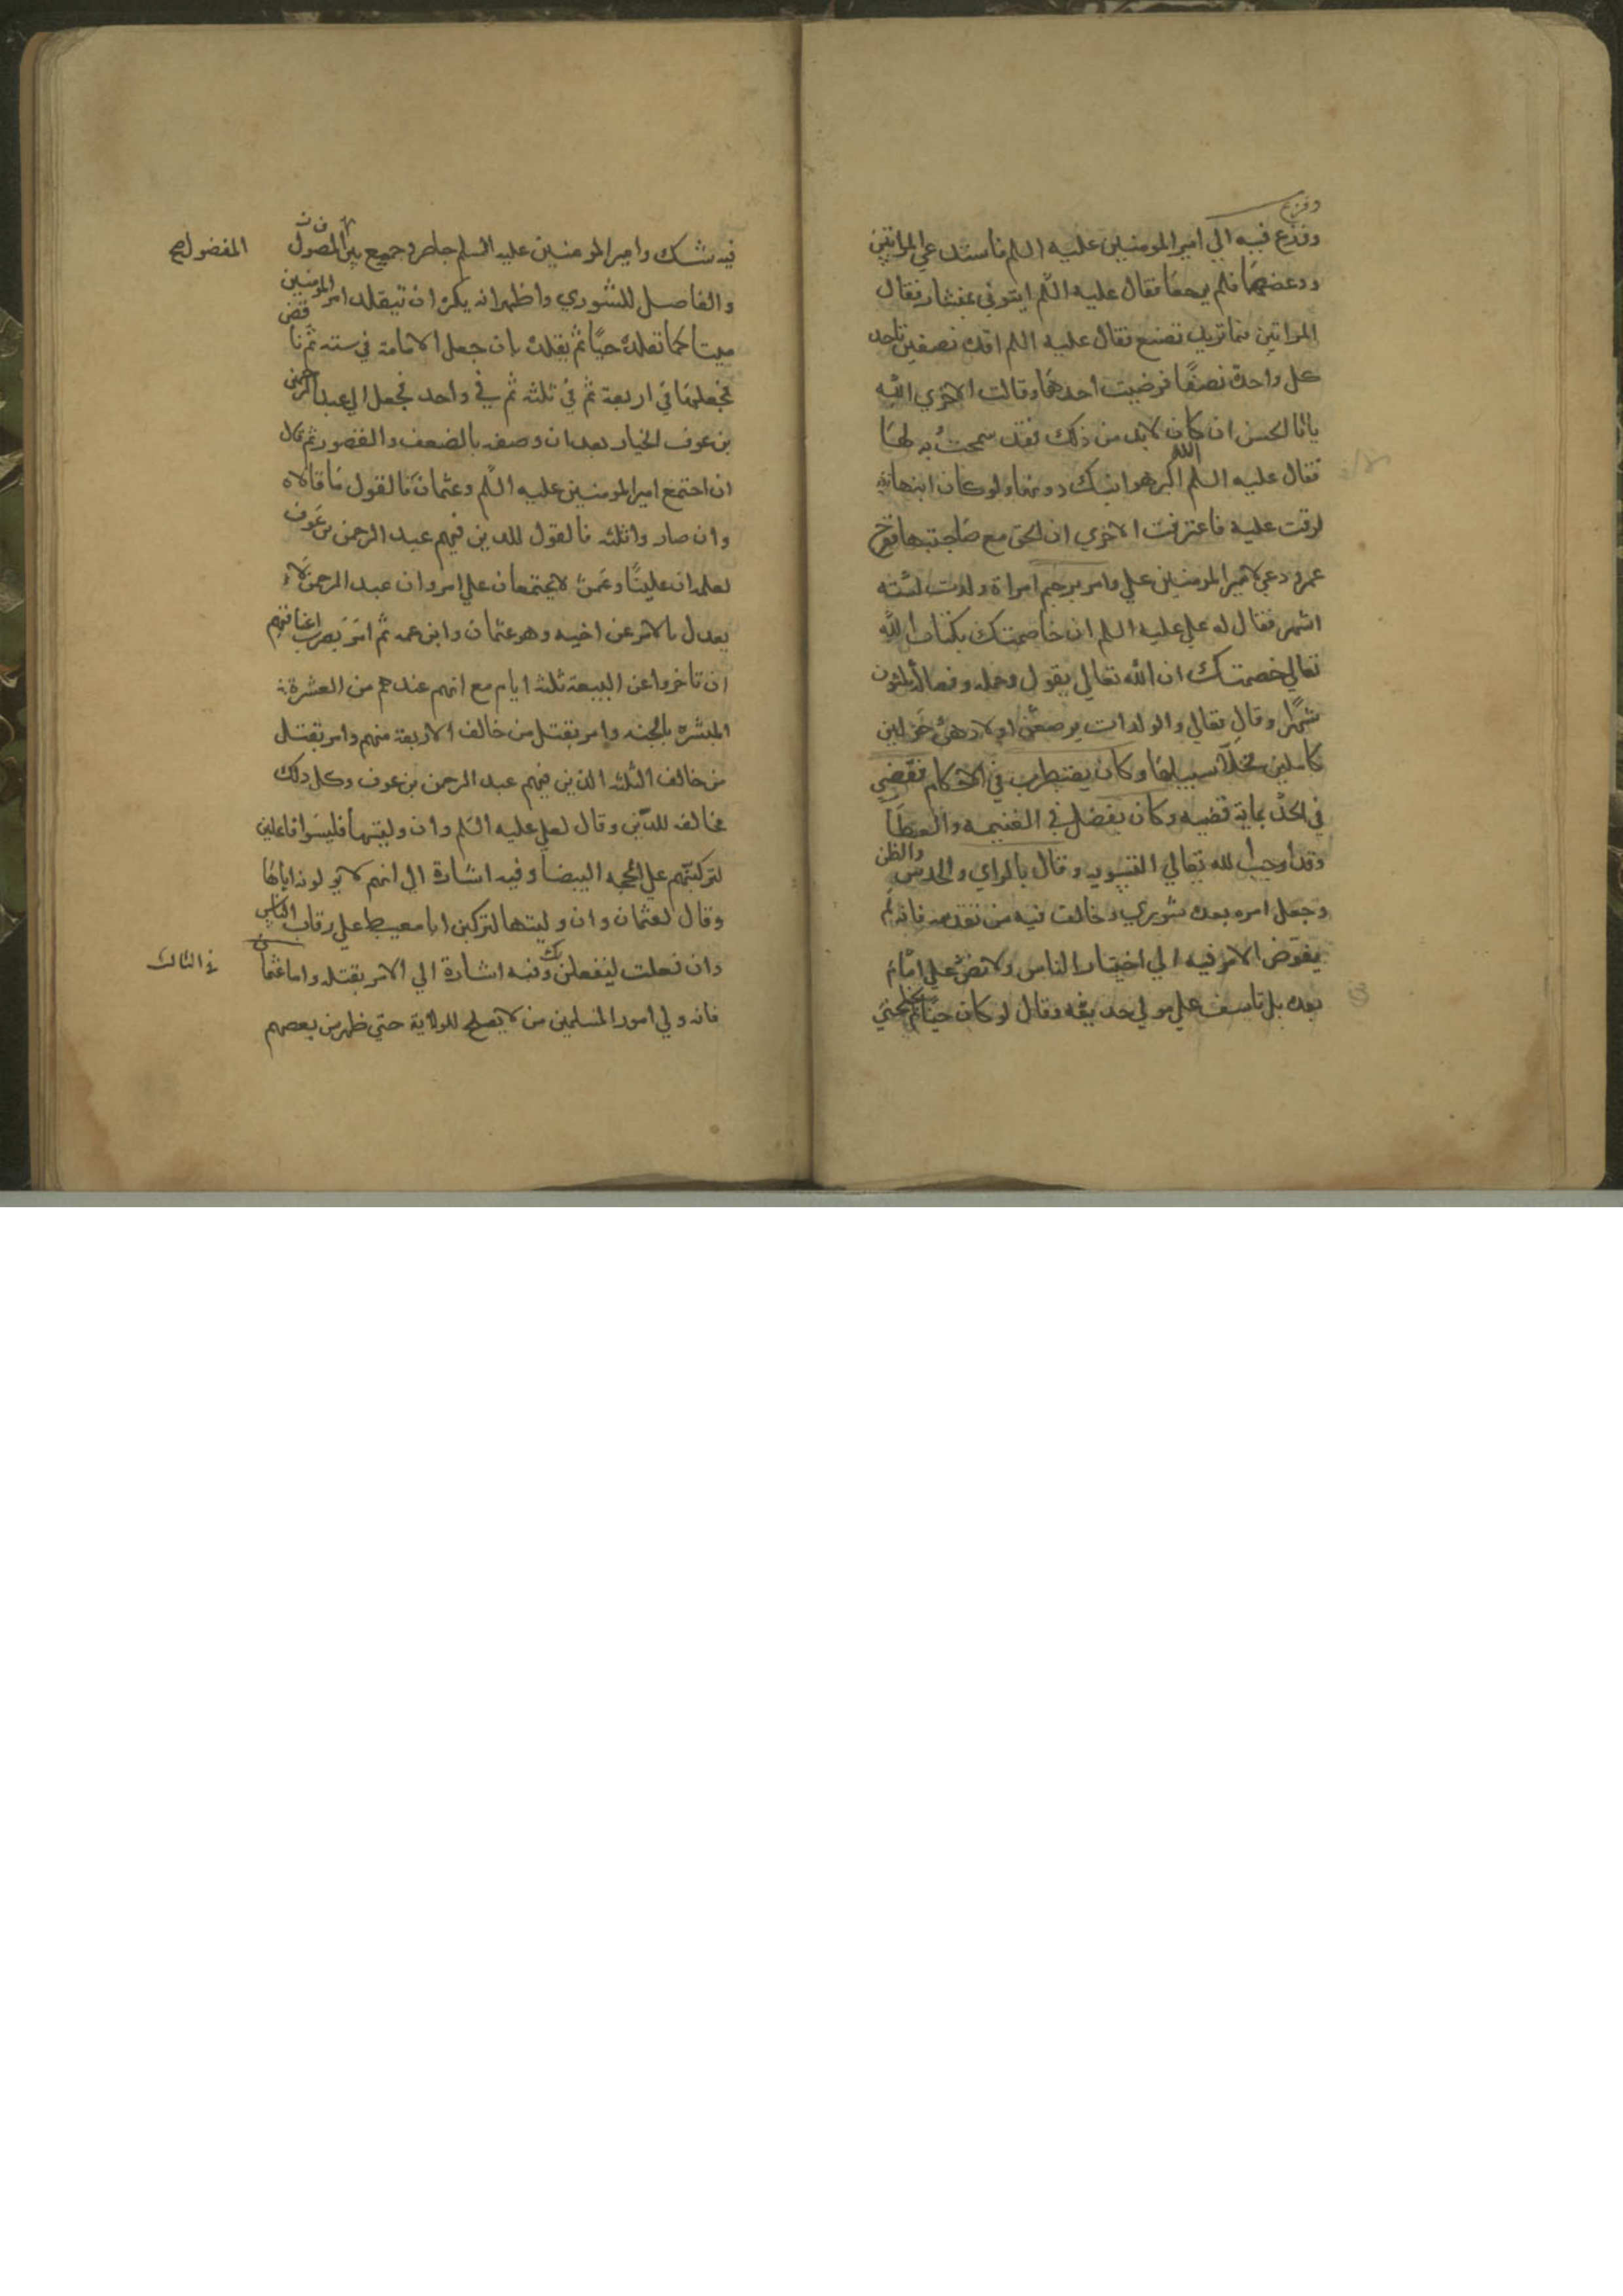 وفزع
وفزع فيه الي امير المومنين عليه السلم فاستدعي المراتين
ووعضهما فلم يرجعا فقال عليه السلم ايتوني بمنشار فقال
المراتين فما تريد تصنع فقال عليه السلم اقده نصفين تاخد
كل واحدة نصفا فرضيت احدهما وقالت الاخري الله
يا ابا الحسن ان كان لا بد من ذلك فقد سمحت به لها
فقال عليه السلم الله اكبر هو ابنك دونها ولو كان ابنها
لرقت عليه فاعترفت الاخري ان الحق مع صاحبتها ففرح
عمر ودعي لامير المومنين علي وامر برجم امراة ولدت لسته
اشهر فقال له علي عليه السلم ان خاصمتك بكتاب الله
تعالي خصمتك ان الله تعالي يقول وحمله وفصاله ثلثون
شهرا وقال تعالي والوالدات يرضعن اولادهن حولين
كاملين فخلا سبيلها وكان يضطرب في الاحكام فقضي
في الحد بماية قضيه وكان يفضل في الغنيمه والعطا
وقد اوجب الله تعالي التسويه وقال بالراي والحدس والظن
وجعل امره بعده شوري وخالف فيه من تقدمه فانه لم
يفوض الامر فيه الي اختيار الناس ولا نص علي امام
بعده بل تاسف علي مولي حديفه وقال لو كان حيا لم يختلجني
فيه شك وامير المومنين عليه السلم حاضر وجميع بين المفصول
المفضول صح
والفاصل للشوري واظهر انه يكره ان يتقلد امر المومنين
ميتا كما تقلده حيا ثم تقلده بان جعل الامامة في سته ثم ناقض
فجعلها في اربعة ثم في ثلثه ثم في واحد فجعل الي عبد الرحمن
بن عوف الخيار بعد ان وصفه بالضعف والقصور ثم قال
ان اجتمع امير المومنين عليه السلم وعثمان فالقول ما قالاه
وان صاروا ثلثه فالقول للدين فيهم عبد الرحمن بن عوف
لعلمه ان عليا وعثمن لا يجتمعان علي امر وان عبد الرحمن لا
يعدل بالامر عن اخيه وهو عثمان وابن عمه ثم امر بضرب اعناقهم
ان تاخروا عن البيعة ثلثه ايام مع انهم عندهم من العشرة
المبشره بالجنه وامر بقتل من خالف الاربعة منهم وامر بقتل
من خالف الثلثه الذين فيهم عبد الرحمن بن عوف وكل دلك
مخالف للدين وقال لعلي عليه السلم وان وليتها فليسوا فاعلين
لتركبنهم علي المحجه البيضا وفيه اشارة الي انهم لا يولونه اياها
وقال لعثمان وان وليتها لتركبن ابا معيط علي رقاب الناس
وان فعلت ليفعلن بك وفيه اشارة الي الامر بقتله واما عثمان
في الثالث
فانه ولي امور المسلمين من لا يصلح للولاية حتي ظهر من بعضهم